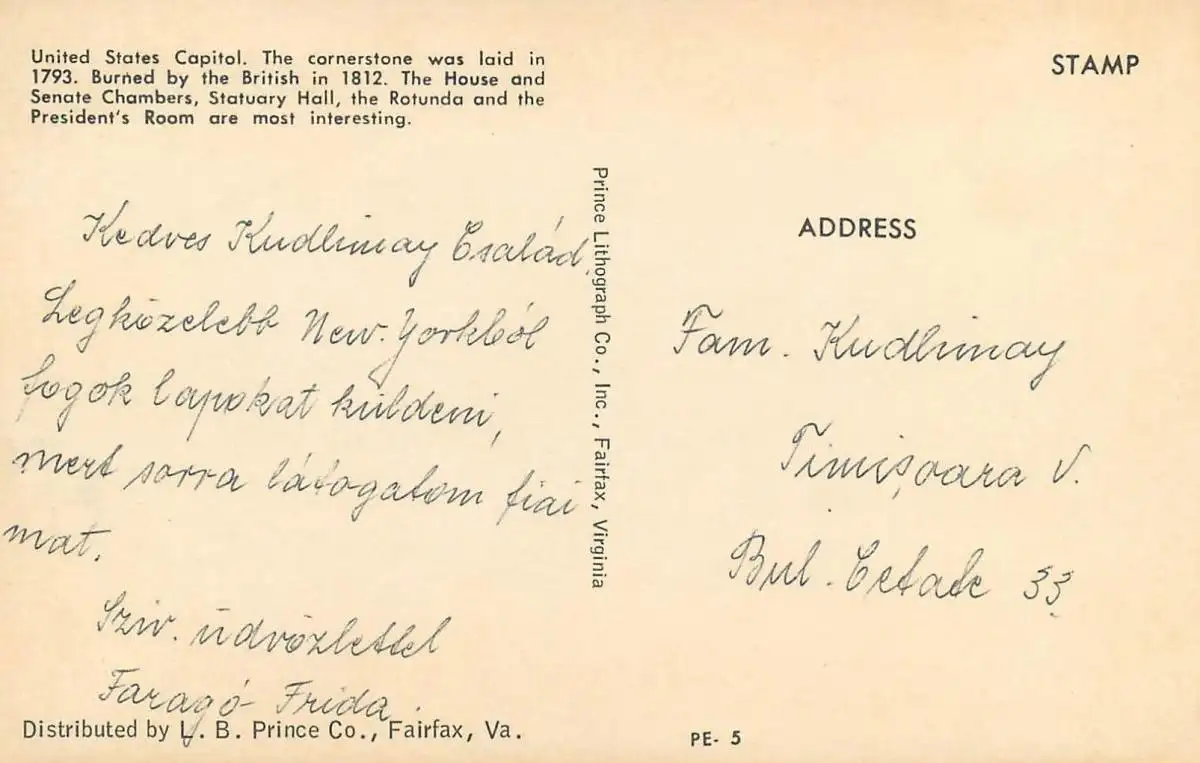 United States Capitol. The cornerstone was laid in
1793. Burned by the British in 1812. The House and
Senate Chambers, Statuary Hall, the Rotunda and the
President's Room are most interesting.
Kedves Kudlimay Család,
Legközelebb New. Yorkból
fogok lapokat küldeni,
mert sorra látogatom fiai
mat.
Sziv. üdvözlettel
Faragó Frida.
Distributed by L. B. Prince Co., Fairfax, Va.
Prince Lithograph Co., Inc., Fairfax, Virginia
STAMP
ADDRESS
Fam. Kudlimay
Timișoara V.
Bul. Cetate 33.
PE- 5